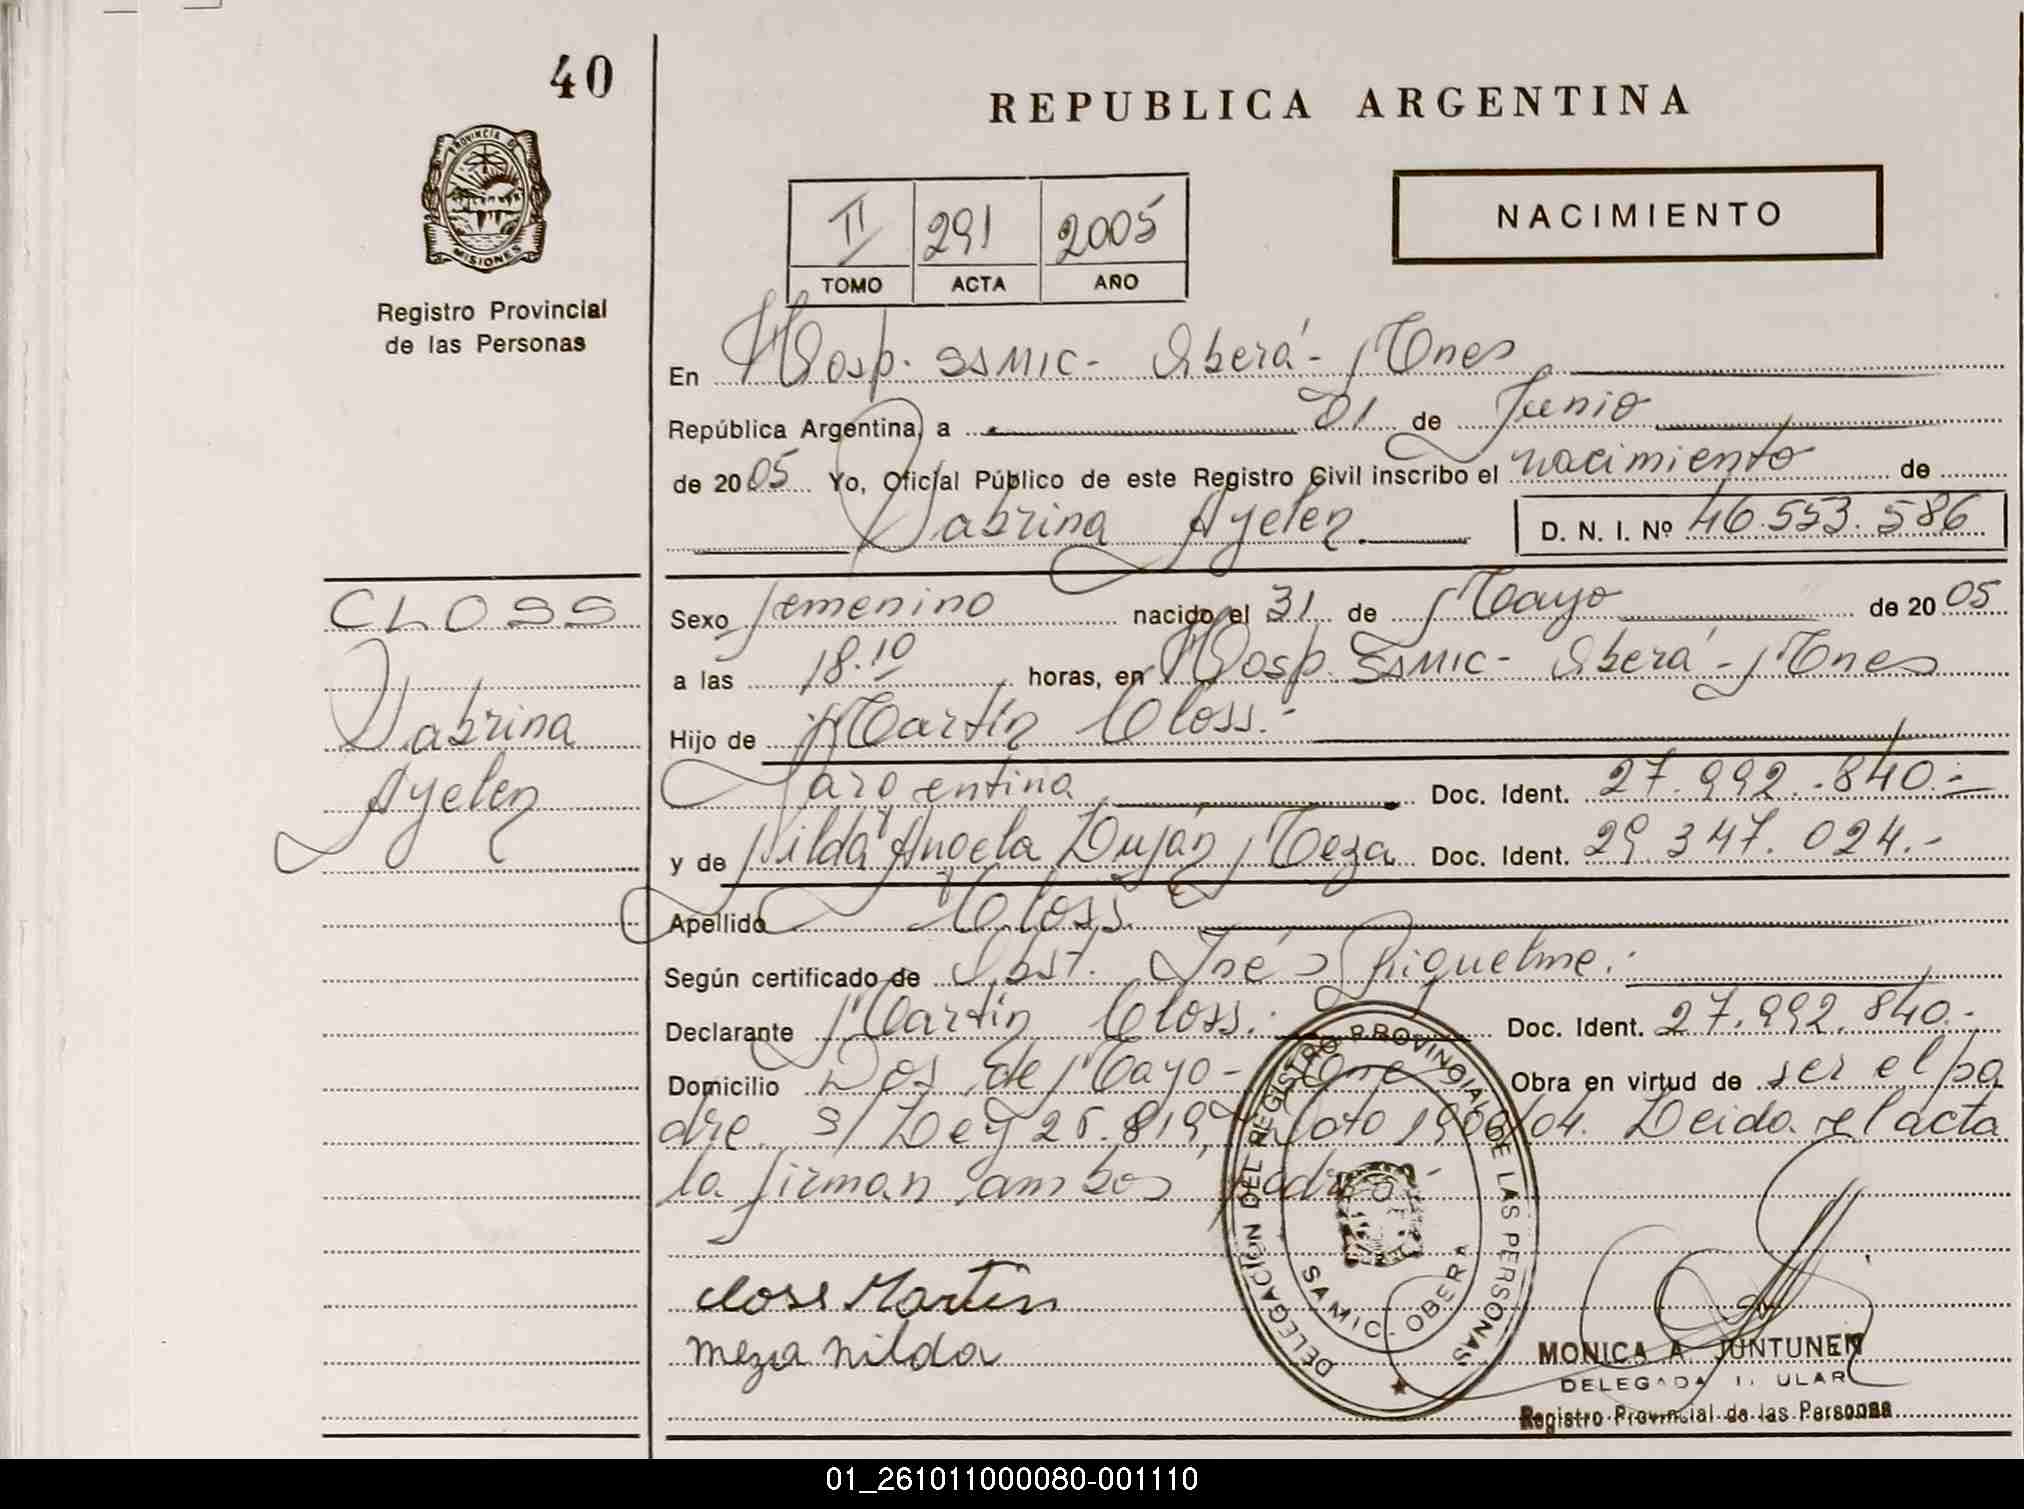 40
REPUBLICA ARGENTINA
PROVINCIA DE
MISIONES
Registro Provincial
de las Personas
II 291 2005
TOMO ACTA AÑO
NACIMIENTO
En Hosp. SAMIC - Oberá - Mnes
República Argentina, a 01 de Junio
de 2005 Yo, Oficial Público de este Registro Civil inscribo el nacimiento de
Sabrina Ayelen. D. N. I. Nº 46.553.586
CLOSS
Sabrina
Ayelen
Sexo femenino nacido el 31 de Mayo de 2005
a las 18.10 horas, en Hosp. SAMIC - Oberá - Mnes
Hijo de Martín Closs.-
argentina Doc. Ident. 27.992.840.-
y de Nilda Angela Luján Meza Doc. Ident. 29.347.024.-
Apellido Closs.
Según certificado de Obst. Inés Riquelme.-
Declarante Martín Closs.- Doc. Ident. 27.992.840.-
Domicilio Dos de Mayo - Mnes Obra en virtud de ser el pa
dre s/ Ley 25.819, Dcto 1906/04. Leida el acta
la firman ambos padres.-
Closs Martin
meza nilda
DELEGACIÓN DEL REGISTRO PROVINCIAL DE LAS PERSONAS
SAMIC - OBERA
MONICA A. JUNTUNEN
DELEGADA
Registro Provincial de las Personas
01_261011000080-001110